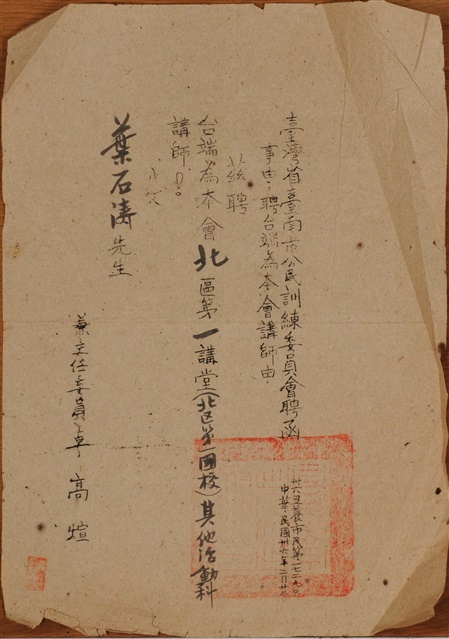 臺灣省臺南市公民訓練委員會聘函
事由:聘台端為本會講師由.
茲聘
台端為本會北區第一講堂(北区第一國校)其他活動科
講師。
此致
葉石濤先生
兼主任委員卓高煊
中華民國卅六年二月廿